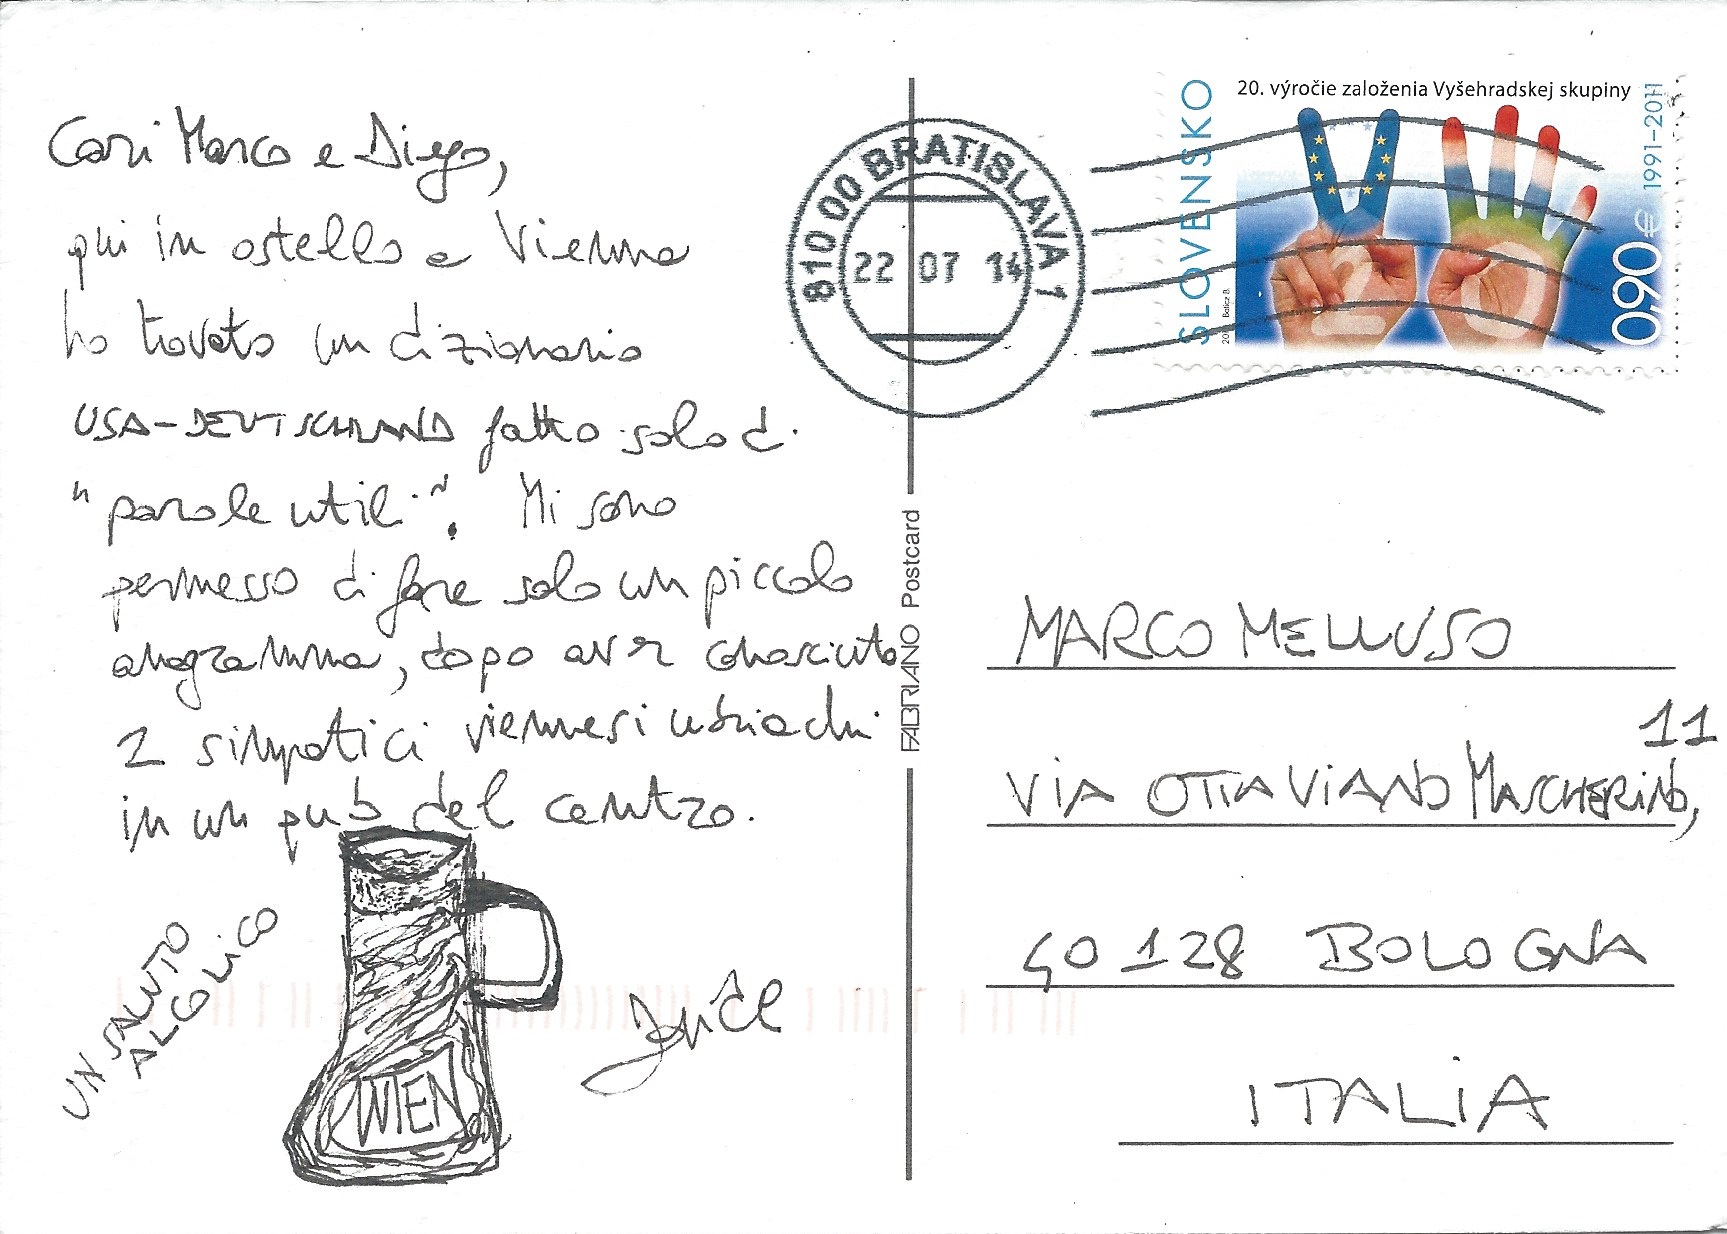 Cari Marco e Diego,
qui in ostello a Vienna
ho trovato un dizionario
USA-DEUTSCHLAND fatto solo di
"parole utili". Mi sono
permesso di fare solo un piccolo
anagramma, dopo aver conosciuto
2 simpatici viennesi ubriachi
in un pub del centro.
UN SALUTO
ALCOLICO
WIEN
FABRIANO Postcard
810 00 BRATISLAVA 1
22 07 14
SLOVENSKO
20. výročie založenia Vyšehradskej skupiny
1991-2011
0,90 €
20
MARCO MELLUSO
VIA OTTAVIANO MASCHERINO, 11
40128 BOLOGNA
ITALIA